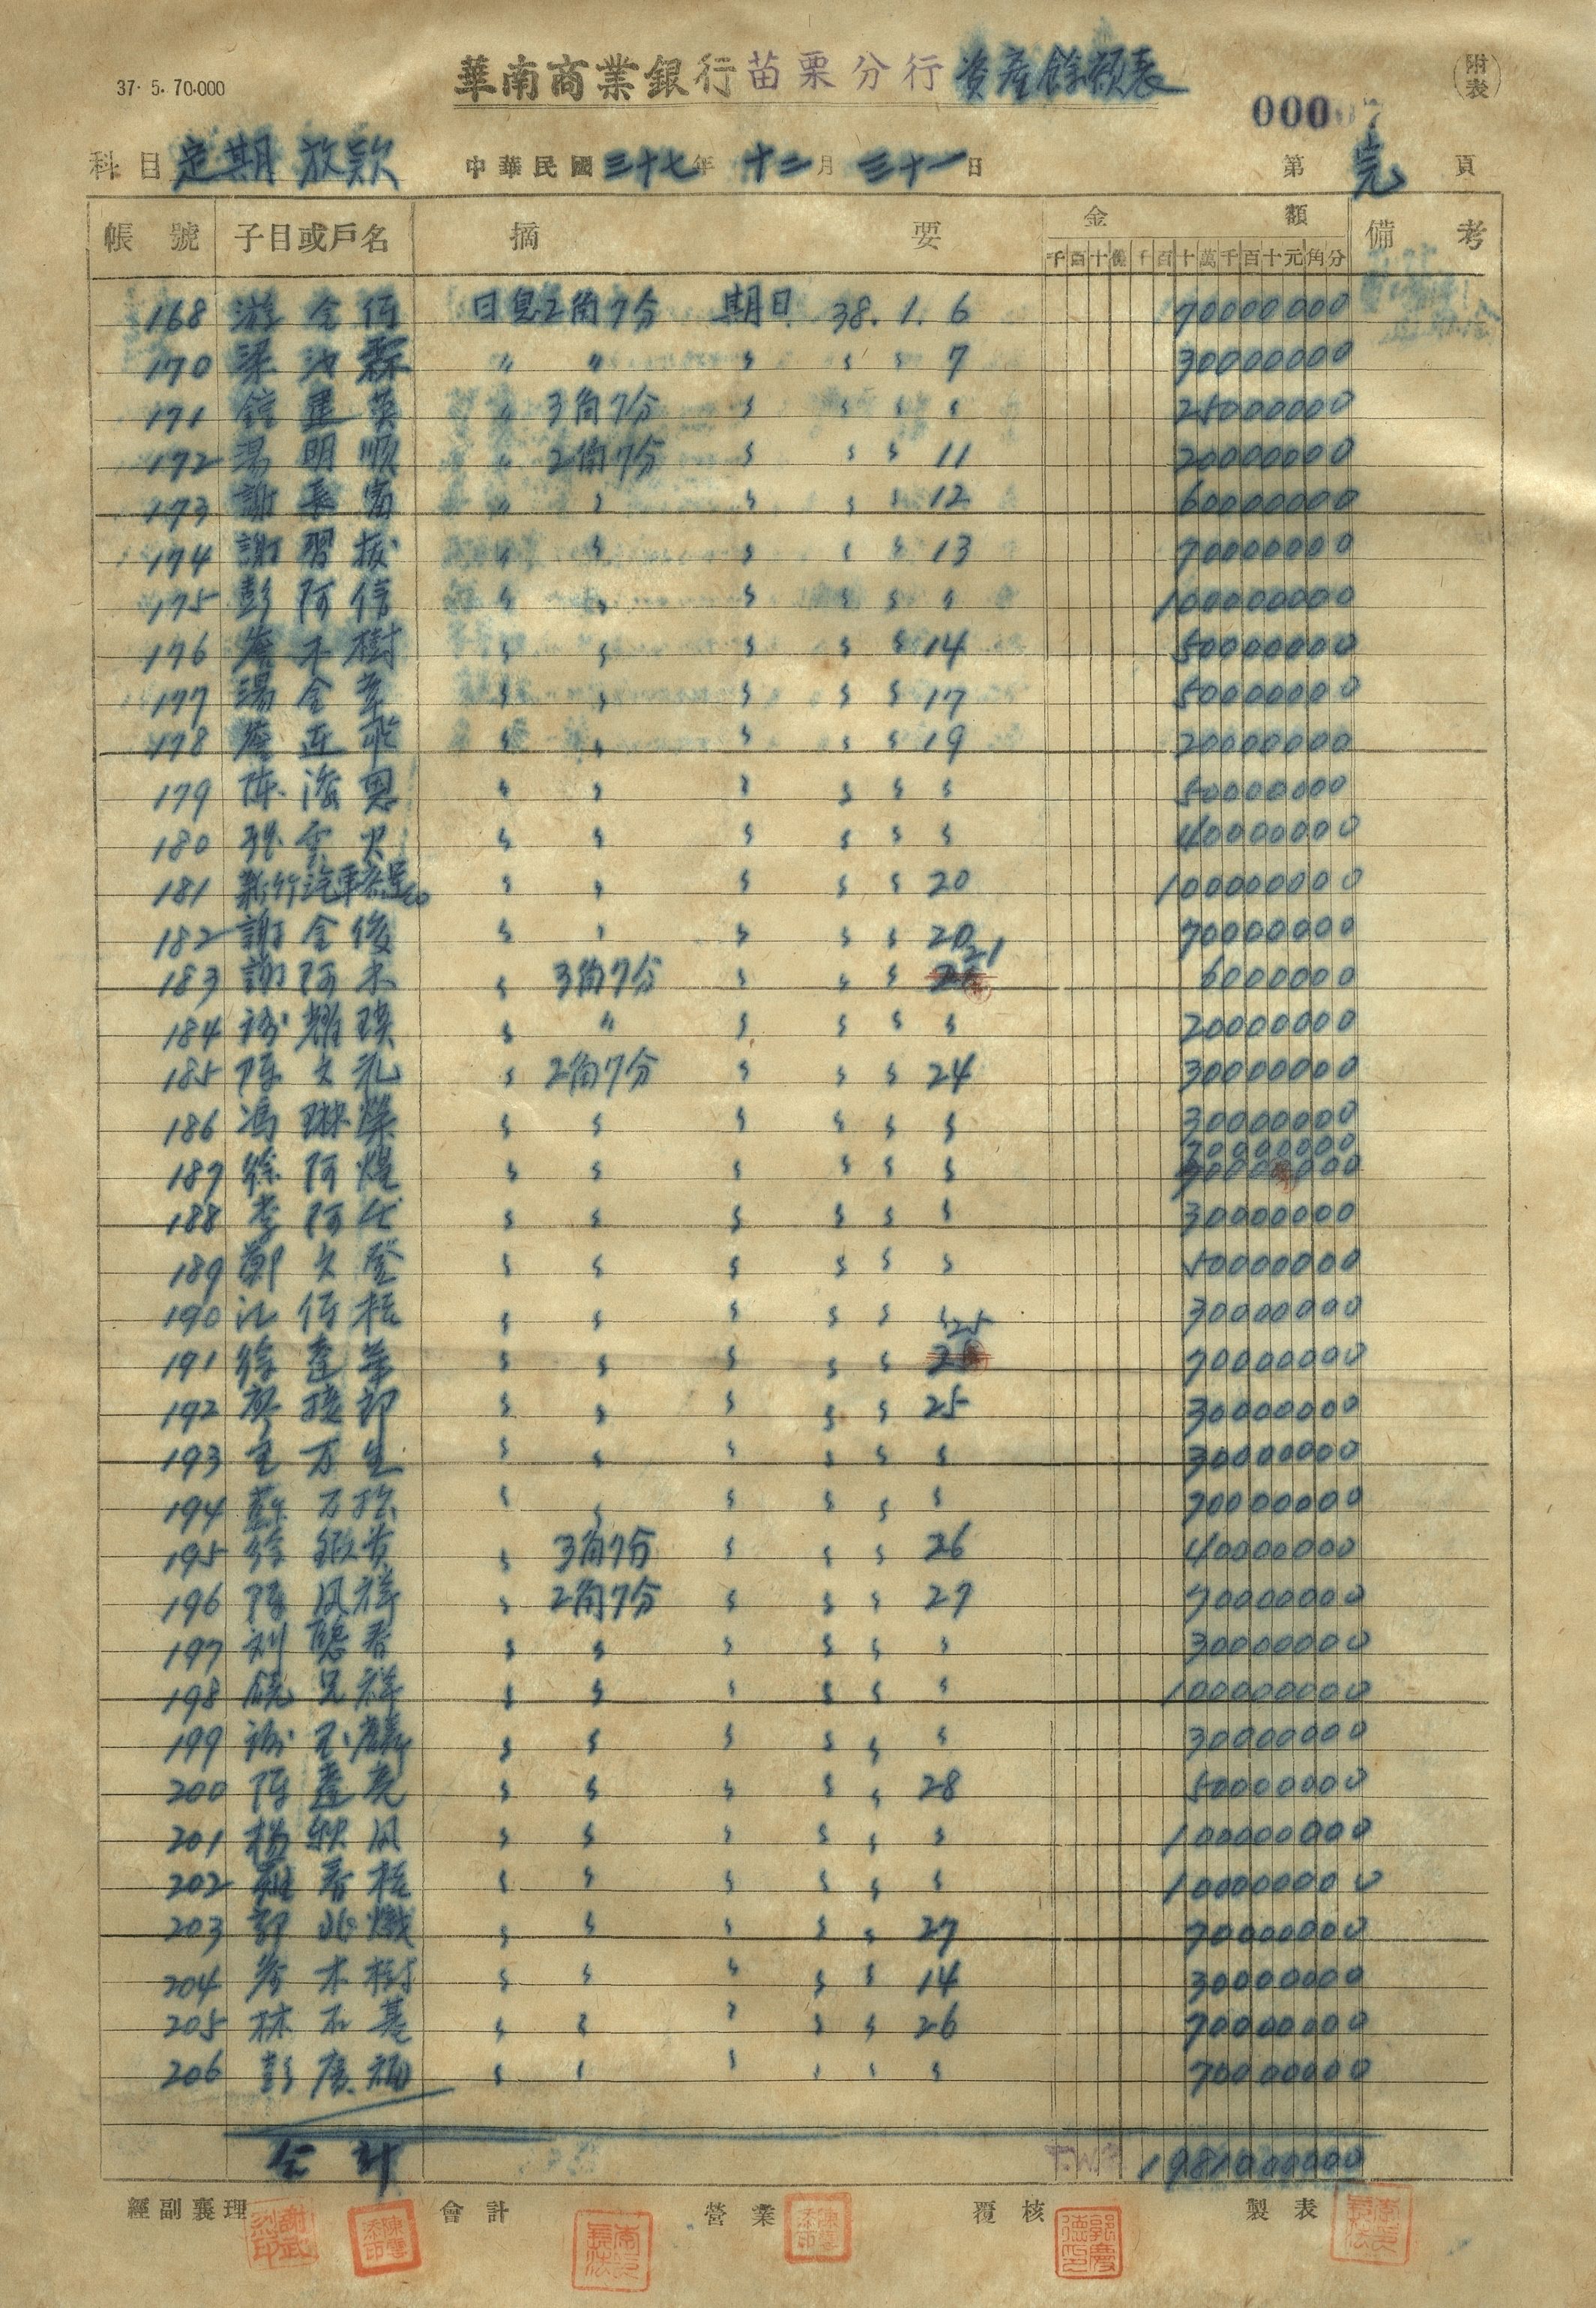 37. 5. 70.000
華南商業銀行苗栗分行資產餘額表
附表
00007
科目定期放款 中華民國三十七年十二月三十一日 第完頁
帳號 子目或戶名 摘要 金額 備考
千百十億千百十萬千百十元角分
168 游金 日息2角7分 期日 38. 1. 6 70000000
170 梁 霖 〃 〃 〃 〃 〃 7 30000000
171 鍾 英 〃 3角7分 〃 〃 〃 〃 25000000
172 湯明順 〃 2角7分 〃 〃 〃 11 20000000
173 謝 富 〃 〃 〃 〃 〃 12 60000000
174 謝習 〃 〃 〃 〃 〃 13 70000000
175 彭阿信 〃 〃 〃 〃 〃 〃 100000000
176 詹木樹 〃 〃 〃 〃 〃 14 50000000
177 湯金 〃 〃 〃 〃 〃 17 50000000
178 詹 〃 〃 〃 〃 〃 19 20000000
179 陳海恩 〃 〃 〃 〃 〃 〃 50000000
180 張雲火 〃 〃 〃 〃 〃 〃 40000000
181 新竹汽車客運Co 〃 〃 〃 〃 〃 20 100000000
182 謝金俊 〃 〃 〃 〃 〃 20 70000000
183 謝阿木 〃 3角7分 〃 〃 〃 21 6000000
184 耀 〃 〃 〃 〃 〃 〃 20000000
185 陳文礼 〃 2角7分 〃 〃 〃 24 30000000
186 馮琳 〃 〃 〃 〃 〃 〃 30000000
70000000
187 徐阿煌 〃 〃 〃 〃 〃 〃
188 李阿 〃 〃 〃 〃 〃 〃 30000000
189 鄭文登 〃 〃 〃 〃 〃 〃 50000000
190 江 桂 〃 〃 〃 〃 〃 〃 30000000
191 徐 〃 〃 〃 〃 〃 25 70000000
192 廖接郎 〃 〃 〃 〃 〃 25 30000000
193 万生 〃 〃 〃 〃 〃 〃 30000000
194 蘇万 〃 〃 〃 〃 〃 〃 70000000
195 徐 〃 3角7分 〃 〃 〃 26 40000000
196 陳凤祥 〃 2角7分 〃 〃 〃 27 70000000
197 刘聰 〃 〃 〃 〃 〃 〃 30000000
198 饒兄祥 〃 〃 〃 〃 〃 〃 100000000
199 麟 〃 〃 〃 〃 〃 〃 30000000
200 陳 亮 〃 〃 〃 〃 〃 28 50000000
201 楊秋凤 〃 〃 〃 〃 〃 〃 100000000
202 羅春桂 〃 〃 〃 〃 〃 〃 100000000
203 郭兆熾 〃 〃 〃 〃 〃 27 70000000
204 詹木樹 〃 〃 〃 〃 〃 14 30000000
205 林石 〃 〃 〃 〃 〃 26 70000000
206 彭房 〃 〃 〃 〃 〃 〃 70000000
合計 1981000000
經副襄理 會計 營業 覆核 製表